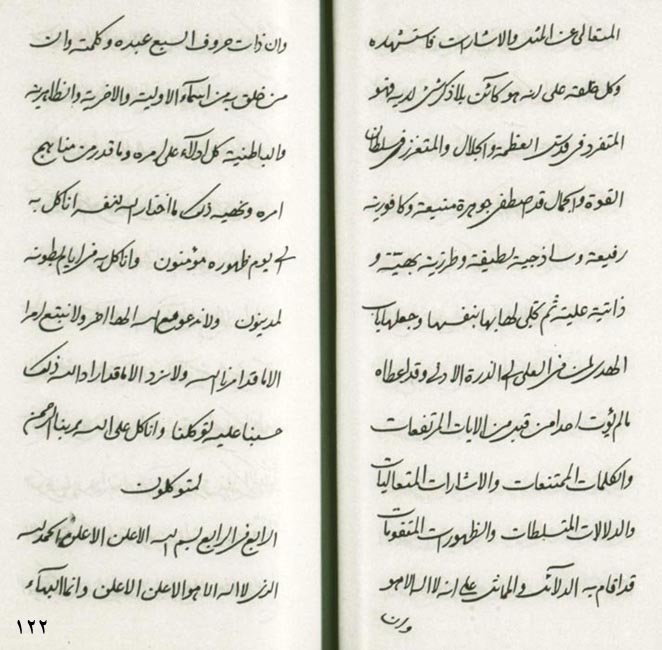 المتعالی عن المثل والاشارات فاستشهده
وکل خلقه علی انه هو کائن بلا ذکر شیء لدیه فهو
المتفرد فی قدس العظمة والجلال والمتعزز فی سلطان
القوة والجمال قد اصطفی جوهرة منیعة وکافوریة
رفیعة وساذجیة لطیفة وطرزیة بهیة و
ذاتیة علیة ثم تجلی لها بها بنفسها وجعلها باب
الهدی لمن فی العلی الی الذرة الادنی وقد اعطاه
مالم یؤت احدا من قبل من الایات المرتفعات
والکلمات الممتنعات والاشارات المتعالیات
والدلالات المتسلطات والظهورات المتقومات
قد اقام به الدلائل علی انه لا اله الا هو
وان
وان ذات حروف السبع عبده وکلمته وان
من خلق به من اسماء الاولیة والاخریة والظاهریة
والباطنیة کل ادلاء علی امره وما قدر من مناهج
امره ونهیه ذلک ما اختار الله لنفسه انا کل به
الی یوم ظهوره مؤمنون وانا کل به فی ایام بطونه
لمدینون ولا ندعو مع الله الها اخر ولا نتبع امرا
الا ما قد امرنا الله ولا نرد الا ما قد اراد الله ذلک
حسبنا علیه توکلنا وانا کل علی الله ربنا الرحمن
لمتوکلون
الرابع فی الرابع بسم الله الاعلن الاعلن الحمد لله
الذی لا اله الا هو الاعلن الاعلن وانما البهاء
۱۲۲